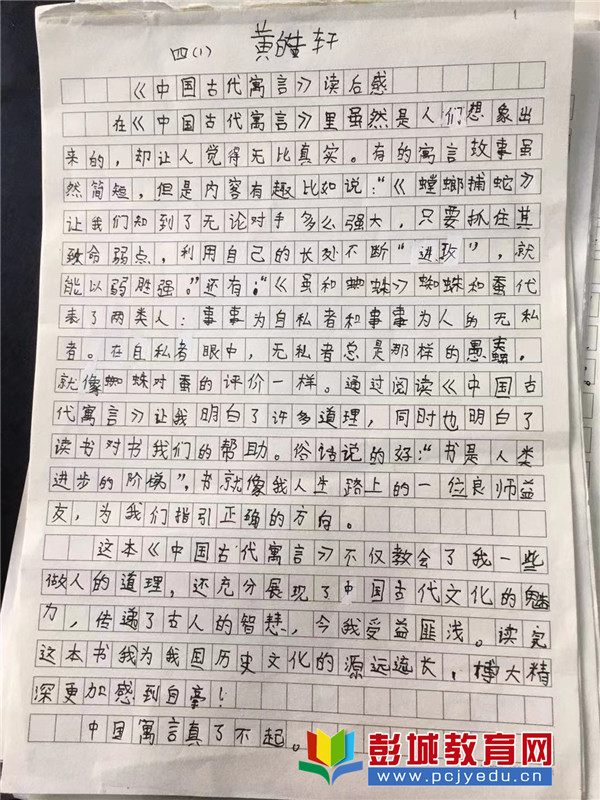 1
四(1) 黄皓轩
《中国古代寓言》读后感
在《中国古代寓言》里虽然是人们想象出
来的，却让人觉得无比真实。有的寓言故事虽
然简短，但是内容有趣比如说：“《螳螂捕蛇》
让我们知到了无论对手多么强大，只要抓住其
致命弱点，利用自己的长处不断“进攻”，就
能以弱胜强。”还有：“《蚕和蜘蛛》蜘蛛和蚕代
表了两类人：事事为自私者和事事为人的无私
者。在自私者眼中，无私者总是那样的愚蠢，
就像蜘蛛对蚕的评价一样。通过阅读《中国古
代寓言》让我明白了许多道理，同时也明白了
读书对书我们的帮助。俗话说的好：“书是人类
进步的阶梯”，书就像我人生路上的一位良师益
友，为我们指引正确的方向。
这本《中国古代寓言》不仅教会了我一些
做人的道理，还充分展现了中国古代文化的魅
力，传递了古人的智慧，令我受益匪浅。读完
这本书我为我国历史文化的源远流长，博大精
深更加感到自豪！
中国寓言真了不起。
彭城教育网
www.pcjyedu.cn